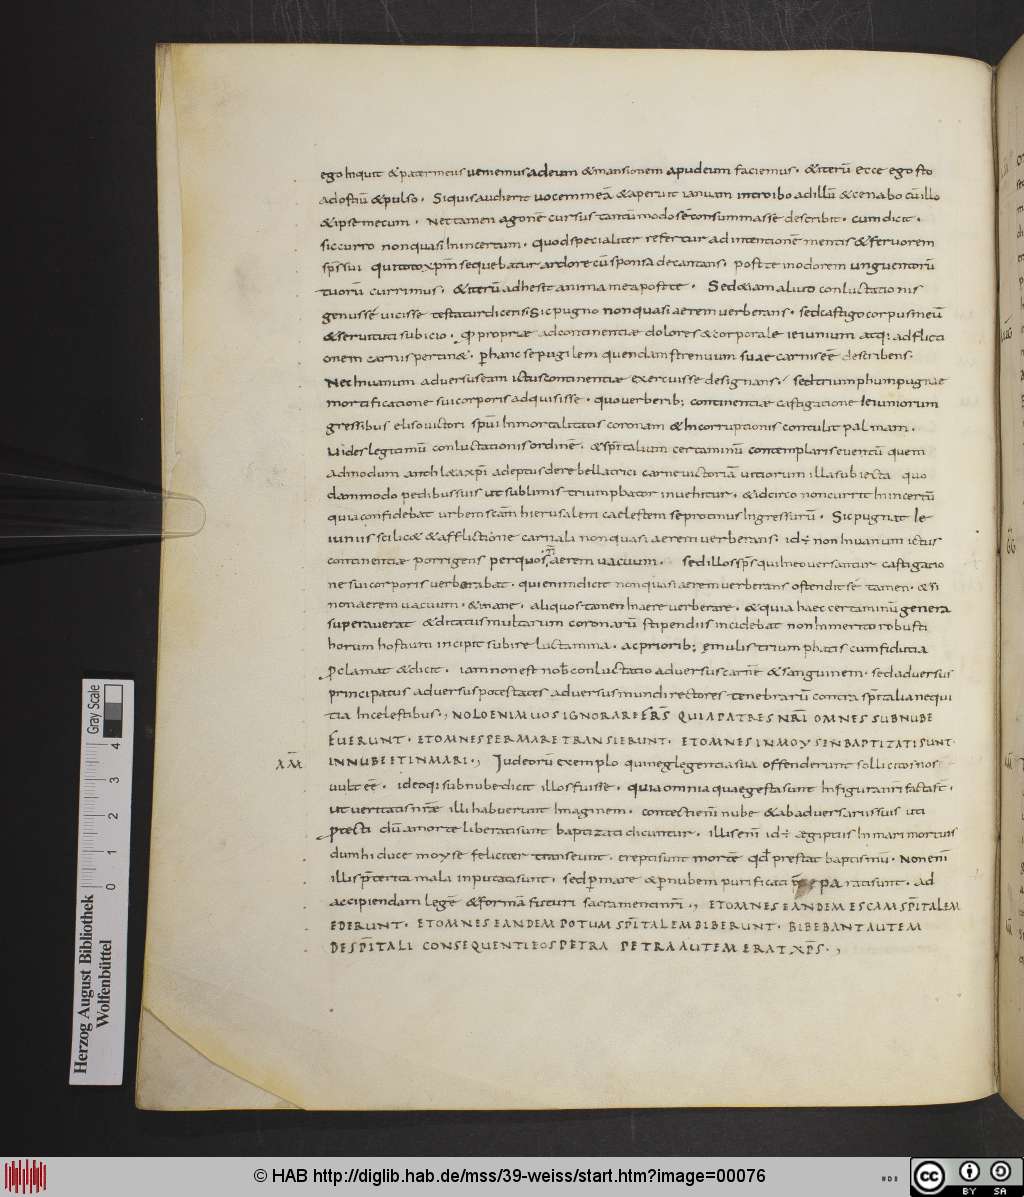 ego Inquit & pater meus veniemus ad eum & mansionem apud eum faciemus. & iterū ecce ego sto
ad ostiū & pulso. Siquis audierit vocem meā & aperuit ianuam introibo ad illū & cenabo cū illo
& ipse mecum. Nec tamen agonē cursus tantūmodo se consummasse describit. cum dicit.
sic curro non quasi In incertum. quod specialiter refertur ad intentionē mentis & fervorem
sp̄s sui qui toto xp̄m sequebatur ardore cū sponsa decantans. post te in odorem unguentorū
tuorū currimus. & iterū adhesit anima mea post te. Sed & iam alivo conluctationis
genus se vicisse testatur dicens Sic pugno non quasi aerem verberans. sed castigo corpus meū
& servituti subicio. qđ propriæ ad continentiæ dolores & corporale ieiunium atq; adflicti
onem carnis pertin&. p hanc se pugilem quendam strenuum suae carnis eē describens.
Nec In vanum adversus eam ictus continentiæ exercuisse designans. sed triumphum pugnae
mortificatione sui corporis adquisisse. quo verberib; continentiæ castigatione Ieiuniorum
gressibus eliso victori sp̄ui Inmortalitatis coronam & Incorruptionis contulit palmam.
Vides legitimū conluctationis ordinē. & sp̄italium certaminū contemplaris eventū quem
ad modum athl&a xp̄i adeptus de rebellatrici carne victoriā vitiorum illa subiecta quo
dammodo pedibus suis ut sublimis triumphator invehitur. & idcirco non currit In incertū
quia confidebat urbem scām hierusalem caelestem se protinus Ingressurū. Sic pugnat Ie
iuniis scilic& & afflictione carnali non quasi aerem verberans. id ÷ non In vanum ictus
continentiæ porrigens per quos n̄ aerem vacuum. sed illos sp̄s qui In eo versantur castigatio
ne sui corporis verberabat. qui enim dicit non quasi aerem verberans ostendit se tamen. & si
non aerem vacuum. & inane. aliquos tamen In aere verberare. & quia haec certaminū genera
superaverat & ditatus multarum coronarū stipendiis incidebat non Inmerito robusti
horum hostium incipit subire luctamina. ac priorib; emulis triumphatis cum fiducia
Proclamat & dicit. iam non est nob̄ conluctatio adversus carnē & sanguinem. sed adversus
principatus adversus potestates adversus mundi rectores tenebrarū contra sp̄italia nequi
tia In celestibus., NOLO ENIM VOS IGNORARE FR̄S QUIA PATRES NR̄I OMNES SUB NUBE
FUERUNT. ET OMNES PER MARE TRANSIERUNT. ET OMNES IN MOYSEN BAPTIZATI SUNT.
AM̄
IN NUBE ET IN MARI., Iudeorū exemplo qui neglegentia sua offenderunt sollicitos nos
vult eē. ideoq; sub nube dicit illos fuisse. quia omnia quae gesta sunt In figura nr̄i facta st̄.
ut veritatis nr̄ae illi habuerunt Imaginem. contecti enī nube & ab adversariis suis uti
protecti dū a morte liberati sunt baptizati dicuntur. illis enī id ÷ aegiptiis In mari mortuis
dum hi duce moyse feliciter transeunt. erepti sunt mortē qđ prestat baptismū. Non enī
illis p̄terita mala inputata sunt. sed p mare & p nubem purificati pa rati sunt. ad
accipiendam legē & formā futuri sacramenti nr̄i., ET OMNES EANDEM ESCAM SPIT̄ALEM
EDERUNT. ET OMNES EANDEM POTUM SPIT̄ALEM BIBERUNT. BIBEBANT AUTEM
DE SPIT̄ALI CONSEQUENTI EOS PETRA PETRA AUTEM ERAT XP̄S.,
Herzog August Bibliothek
Wolfenbüttel
0 1 2 3 4
Gray Scale
© HAB http://diglib.hab.de/mss/39-weiss/start.htm?image=00076
cc BY SA